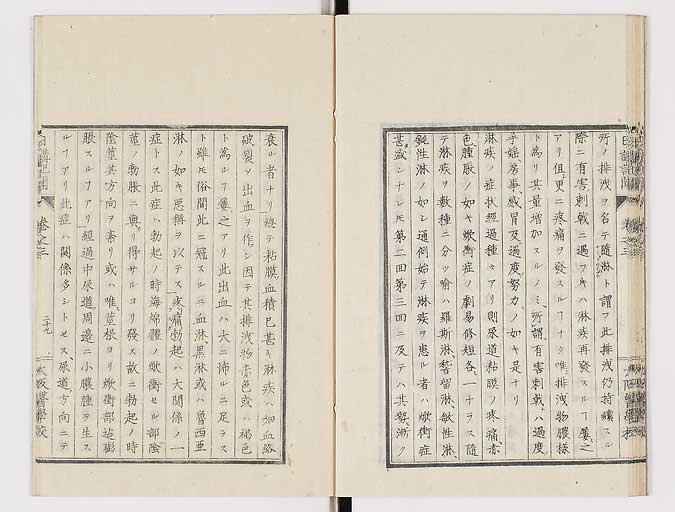 所ノ排洩ヲ名テ随淋ト謂フ此排洩仍持續スル
際ニ有害刺戟ニ遇フキハ淋疾再發スルヿ屢之
アリ但更ニ疼痛ヲ發スルヿナク唯排洩物膿様
ト為リ其量増加スルノミ所謂有害刺戟ハ過度
手婬房事感冒及過度努力ノ如キ是ナリ
淋疾ノ症状經過種々アリ則尿道粘膜ノ疼痛赤
色腫脹ノ如キ焮衝症ノ劇易修短各一ナラス随
テ淋疾ヲ數種ニ分ツ喩ハ羅斯淋稽留淋敏性淋
鈍性淋ノ如シ通例始テ淋疾ヲ患ル者ハ焮衝症
甚盛シナレ𪜈第二回第三回ニ及テハ其勢漸ク
衰ル者ナリ總テ粘膜血積已甚キ淋疾ハ細血絡
破裂ヲ出血ヲ作シ因テ其排洩物赤色或ハ褐色
ト為ルヿ屢之アリ此出血ハ大ニ怖ルニ足ラス
ト雖𪜈俗間此ニ冠スルニ血淋黒淋或ハ魯西亜
淋ノ如キ悪稱ヲ以テス疼痛勃起ハ大関係ノ一
症トス此症ハ勃起ノ時海綿體ノ焮衝セル部陰
莖ノ勃脹ニ與リ得サルヨリ發ス故ニ勃起ノ時
陰莖其方向ヲ紊リ或ハ唯莖根ヨリ焮衝部迄膨
脹スルヿアリ經過中尿道周邊ニ小膿腫ヲ生ス
ルヿアリ此症ハ関係多シトセス尿道方向ニテ
卷之三
二十九
大阪醫學校